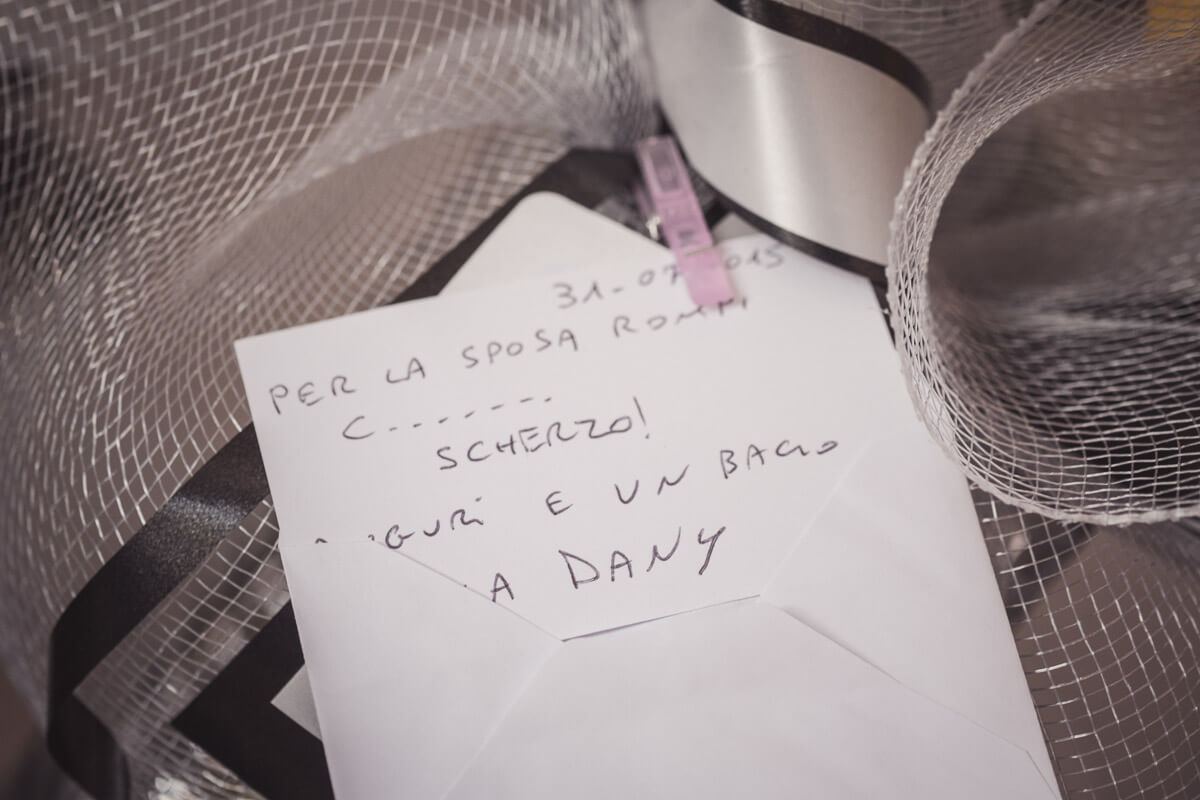 31-07 2015
PER LA SPOSA ROMPI
C......
SCHERZO!
AUGURI E UN BACIO
DANY